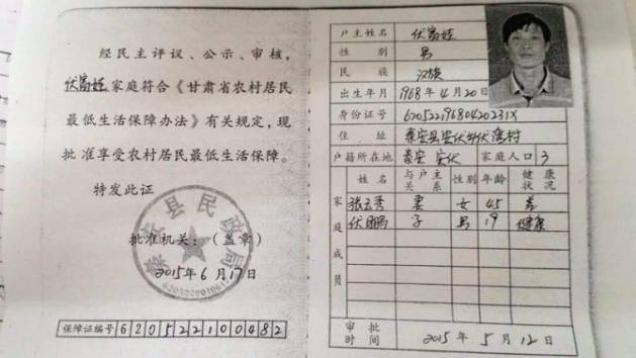 经民主评议、公示、审核，
伏富娃家庭符合《甘肃省农村居民
最低生活保障办法》有关规定，现
批准享受农村居民最低生活保障。
特发此证
秦安县民政局
批准机关：（盖章）
2015年6月17日
保障证编号 620522100482
户主姓名 伏富娃
性别 男
民族 汉族
出生年月 1968年4月20日
身份证号 62052219680420231X
住址 秦安县安伏乡伏湾村
户籍所在地 秦安 安伏 家庭人口 3
家庭成员
姓名 与户主关系 性别 年龄 健康状况
张云秀 妻 女 45 差
伏鹏 子 男 19 健康
审批时间 2015年5月12日